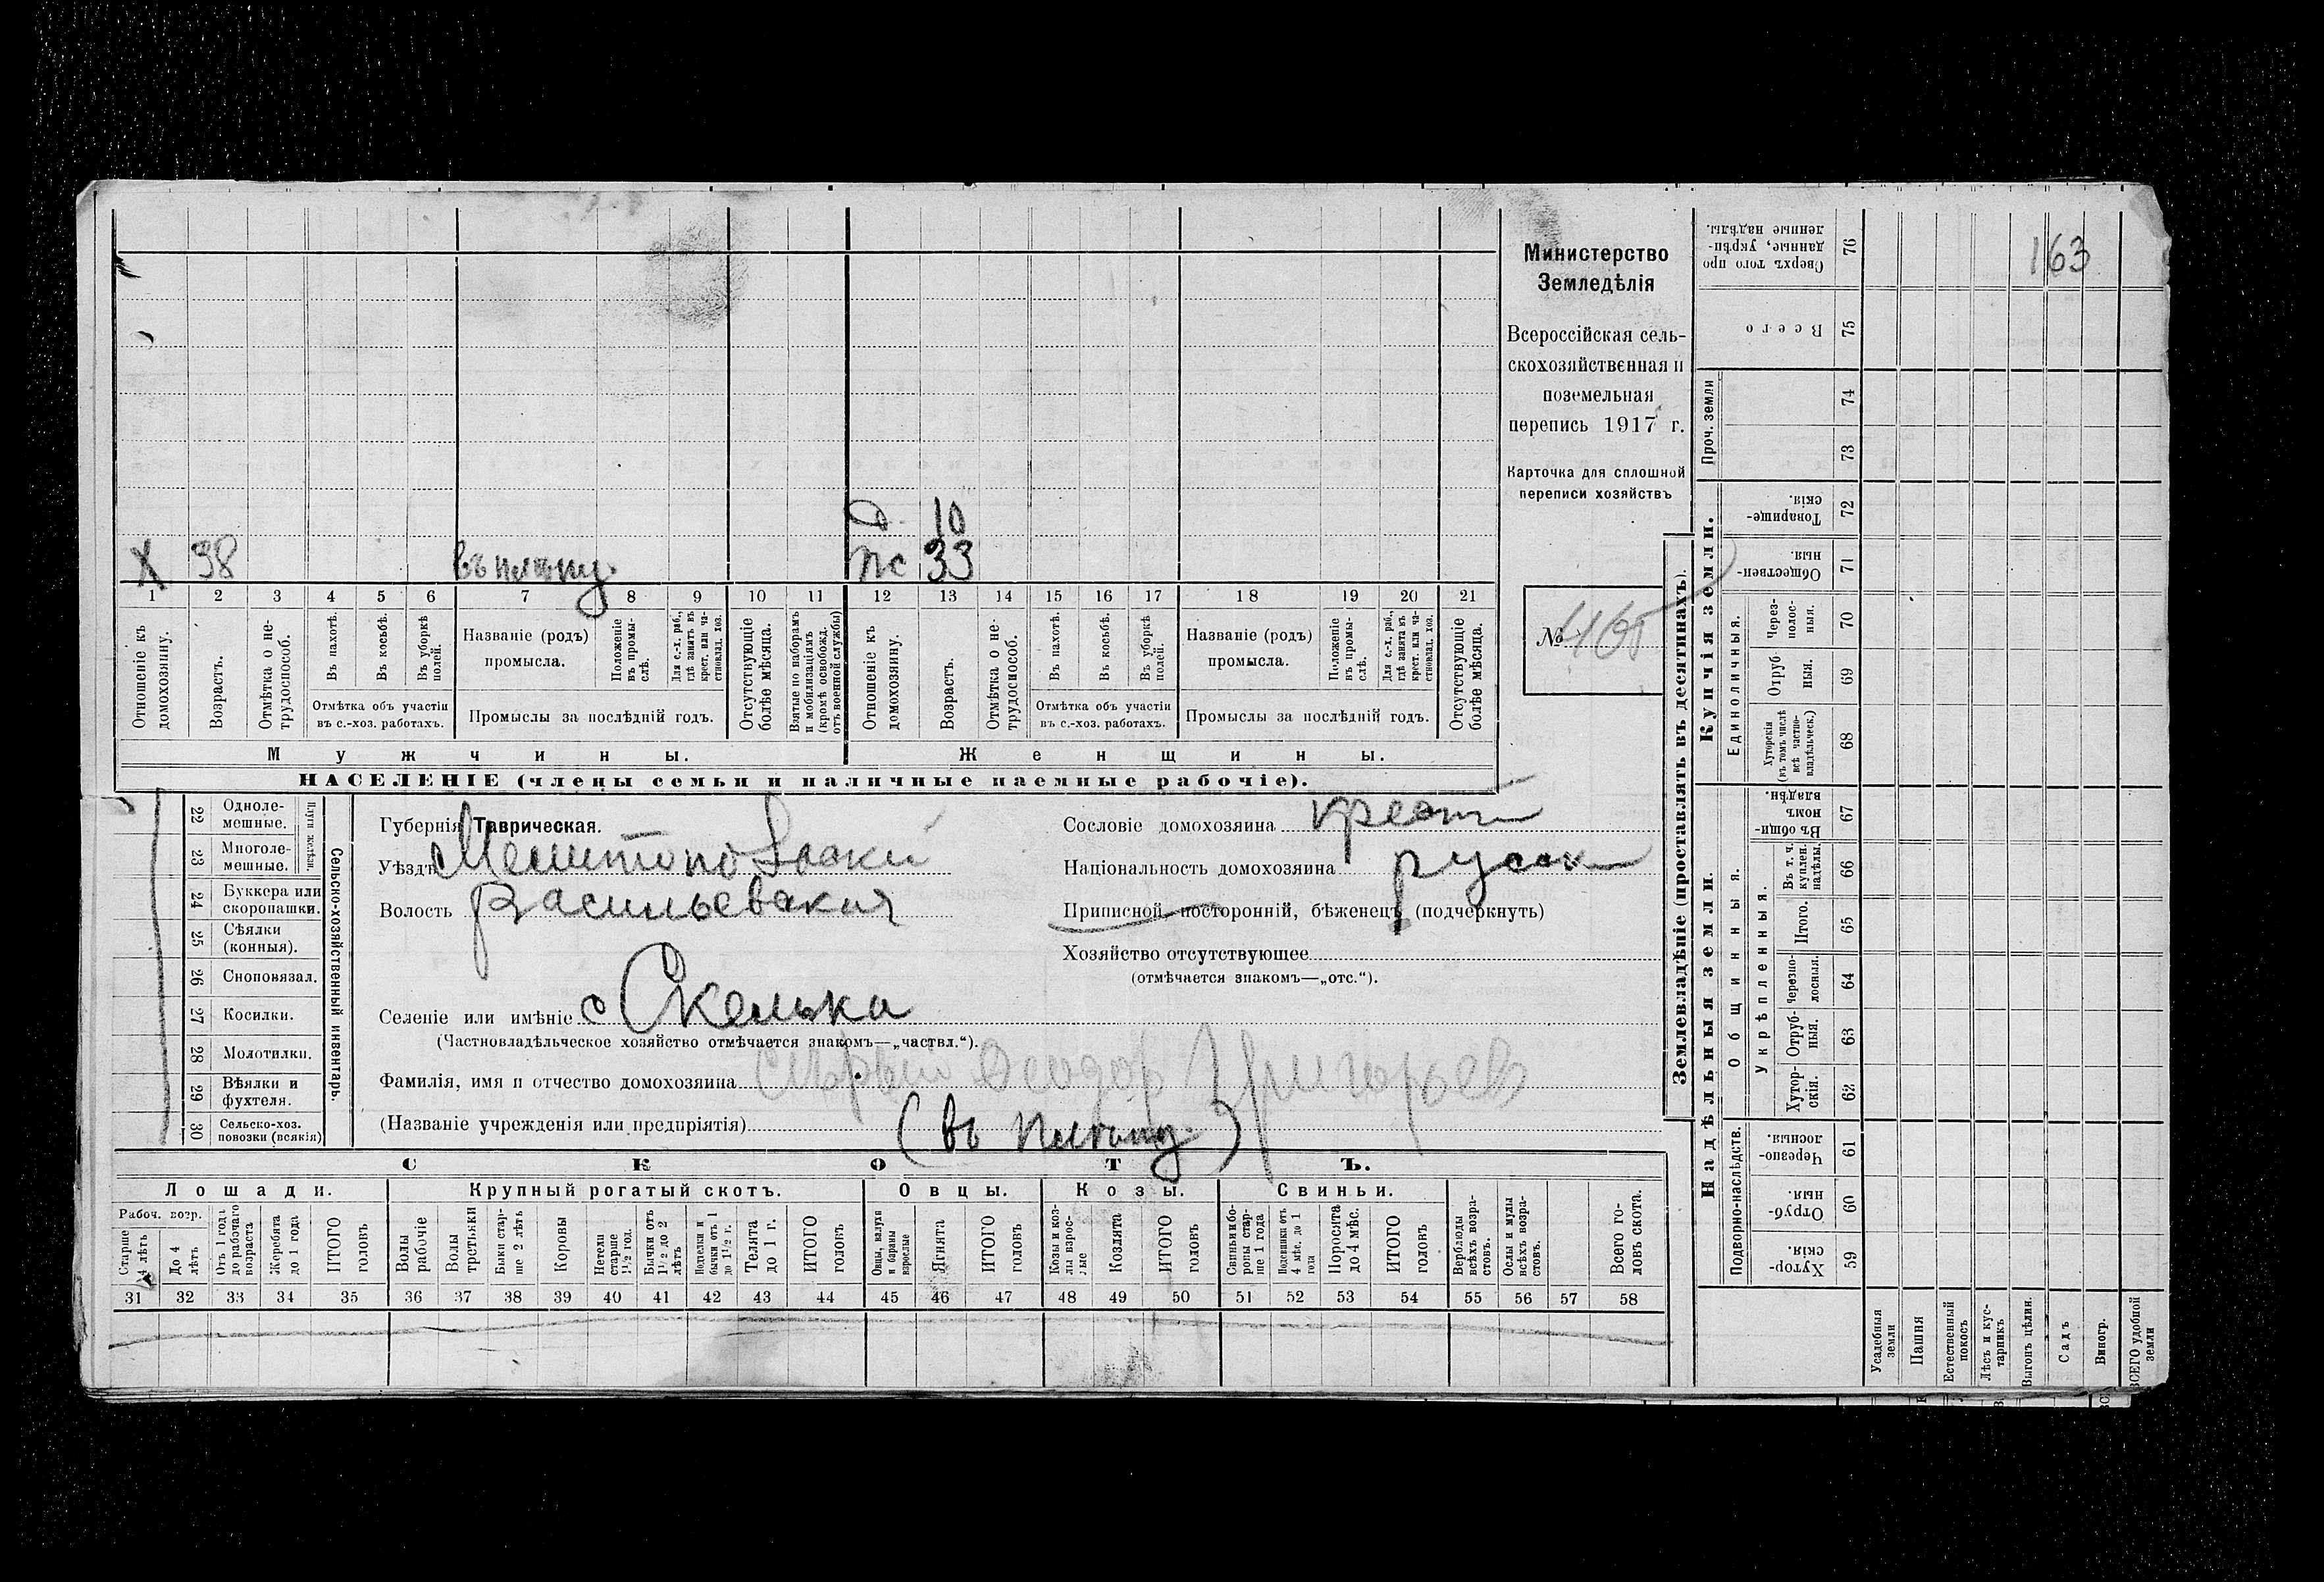 163
Министерство
Земледѣлія
Всероссійская сель-
скохозяйственная и
поземельная
перепись 1917 г.
Карточка для сплошной
переписи хозяйствъ
№
д. 10
Х 38 въ плѣну. пс 33
1 2 3 4 5 6 7 8 9 10 11 12 13 14 15 16 17 18 19 20 21
Отношеніе къ домохозяину.
Возрастъ.
Отмѣтка о не-трудоспособ.
Въ пахотѣ.
Въ косьбѣ.
Въ уборкѣ полей.
Отмѣтка объ участіи
въ с.-хоз. работахъ.
Названіе (родъ)
промысла.
Положеніе въ промы-слѣ.
Для с.-х. раб., гдѣ занятъ въ крест. или ча-стновлад. хоз.
Промыслы за послѣдній годъ.
Отсутствующіе болѣе мѣсяца.
Взятые по наборамъ и мобилизаціямъ (кромѣ освобожд. отъ военной службы)
Отношеніе къ домохозяину.
Возрастъ.
Отмѣтка о не-трудоспособ.
Въ пахотѣ.
Въ косьбѣ.
Въ уборкѣ полей.
Отмѣтка объ участіи
въ с.-хоз. работахъ.
Названіе (родъ)
промысла.
Положеніе въ промы-слѣ.
Для с.-х. раб., гдѣ занята въ крест. или ча-стновлад. хоз.
Промыслы за послѣдній годъ.
Отсутствующіе болѣе мѣсяца.
Мужчины. Женщины.
НАСЕЛЕНІЕ (члены семьи и наличные наемные рабочіе).
Сельско-хозяйственный инвентарь
Плуги желѣзн.
22 Одноле-
мешные.
23 Многоле-
мешные.
24 Буккера или
скоропашки.
25 Сѣялки
(конныя).
26 Сноповязал.
27 Косилки.
28 Молотилки.
29 Вѣялки и
фухтеля.
30 Сельско-хоз.
повозки (всякія)
Губернія Таврическая.
Уѣздъ Мелитопольскій
Волость Васильевская
Селеніе или имѣніе с Скелька
(Частновладѣльческое хозяйство отмѣчается знакомъ—„частвл.“).
Фамилія, имя и отчество домохозяина Сѣрый Феодор Григорьев
(Названіе учрежденія или предпріятія) (въ плѣну.)
Сословіе домохозяина крест
Національность домохозяина русск
Приписной, посторонній, бѣженецъ (подчеркнуть)
Хозяйство отсутствующее
(отмѣчается знакомъ—„отс.“).
СКОТЪ.
Лошади. Крупный рогатый скотъ. Овцы. Козы. Свиньи.
Рабоч. возр.
Старше 4 лѣтъ
До 4 лѣтъ
Отъ 1 года до рабочаго возраста
Жеребята до 1 года
ИТОГО головъ
Волы рабочіе
Волы третьяки
Быки стар-ше 2 лѣтъ
Коровы
Нетели старше 1½ год.
Бычки отъ 1½ до 2 лѣтъ
Подтелки и бычки отъ 1 до 1½ г.
Телята до 1 г.
ИТОГО головъ
Овцы, валухи и бараны взрослые
Ягнята
ИТОГО головъ
Козы и коз-лы взрос-лые
Козлята
ИТОГО головъ
Свиньи и бо-ровы стар-ше 1 года
Подсвинки отъ 4 мѣс. до 1 года
Поросята до 4 мѣс.
ИТОГО головъ
Верблюды всѣхъ возра-стовъ.
Ослы и мулы всѣхъ возра-стовъ.
Всего го-ловъ скота.
31 32 33 34 35 36 37 38 39 40 41 42 43 44 45 46 47 48 49 50 51 52 53 54 55 56 57 58
Землевладѣніе (проставлять въ десятинахъ).
Купчія земли.
Надѣльныя земли.
Проч. земли
Единоличныя.
Общинныя.
Укрѣпленныя.
Подворно-наслѣдств.
Сверхъ того про данные, укрѣп-ленные надѣлы. 76
Всего 75
74
73
Товарище-скія. 72
Обществен-ныя. 71
Через-полос-ныя. 70
Отруб-ныя. 69
Хуторскія (въ томъ числѣ всѣ частно-владѣльческ.) 68
Въ общин-номъ владѣн. 67
Въ т. ч. куплен. надѣлы. 66
Итого. 65
Черезпо-лосныя. 64
Отруб-ныя. 63
Хутор-скія. 62
Черезпо-лосныя. 61
Отруб-ныя. 60
Хутор-скія. 59
Усадебныя земли
Пашня
Естественный покосъ
Лѣсъ и кус-тарникъ
Выгонъ цѣлин.
Садъ
Виногр.
ВСЕГО удобной земли